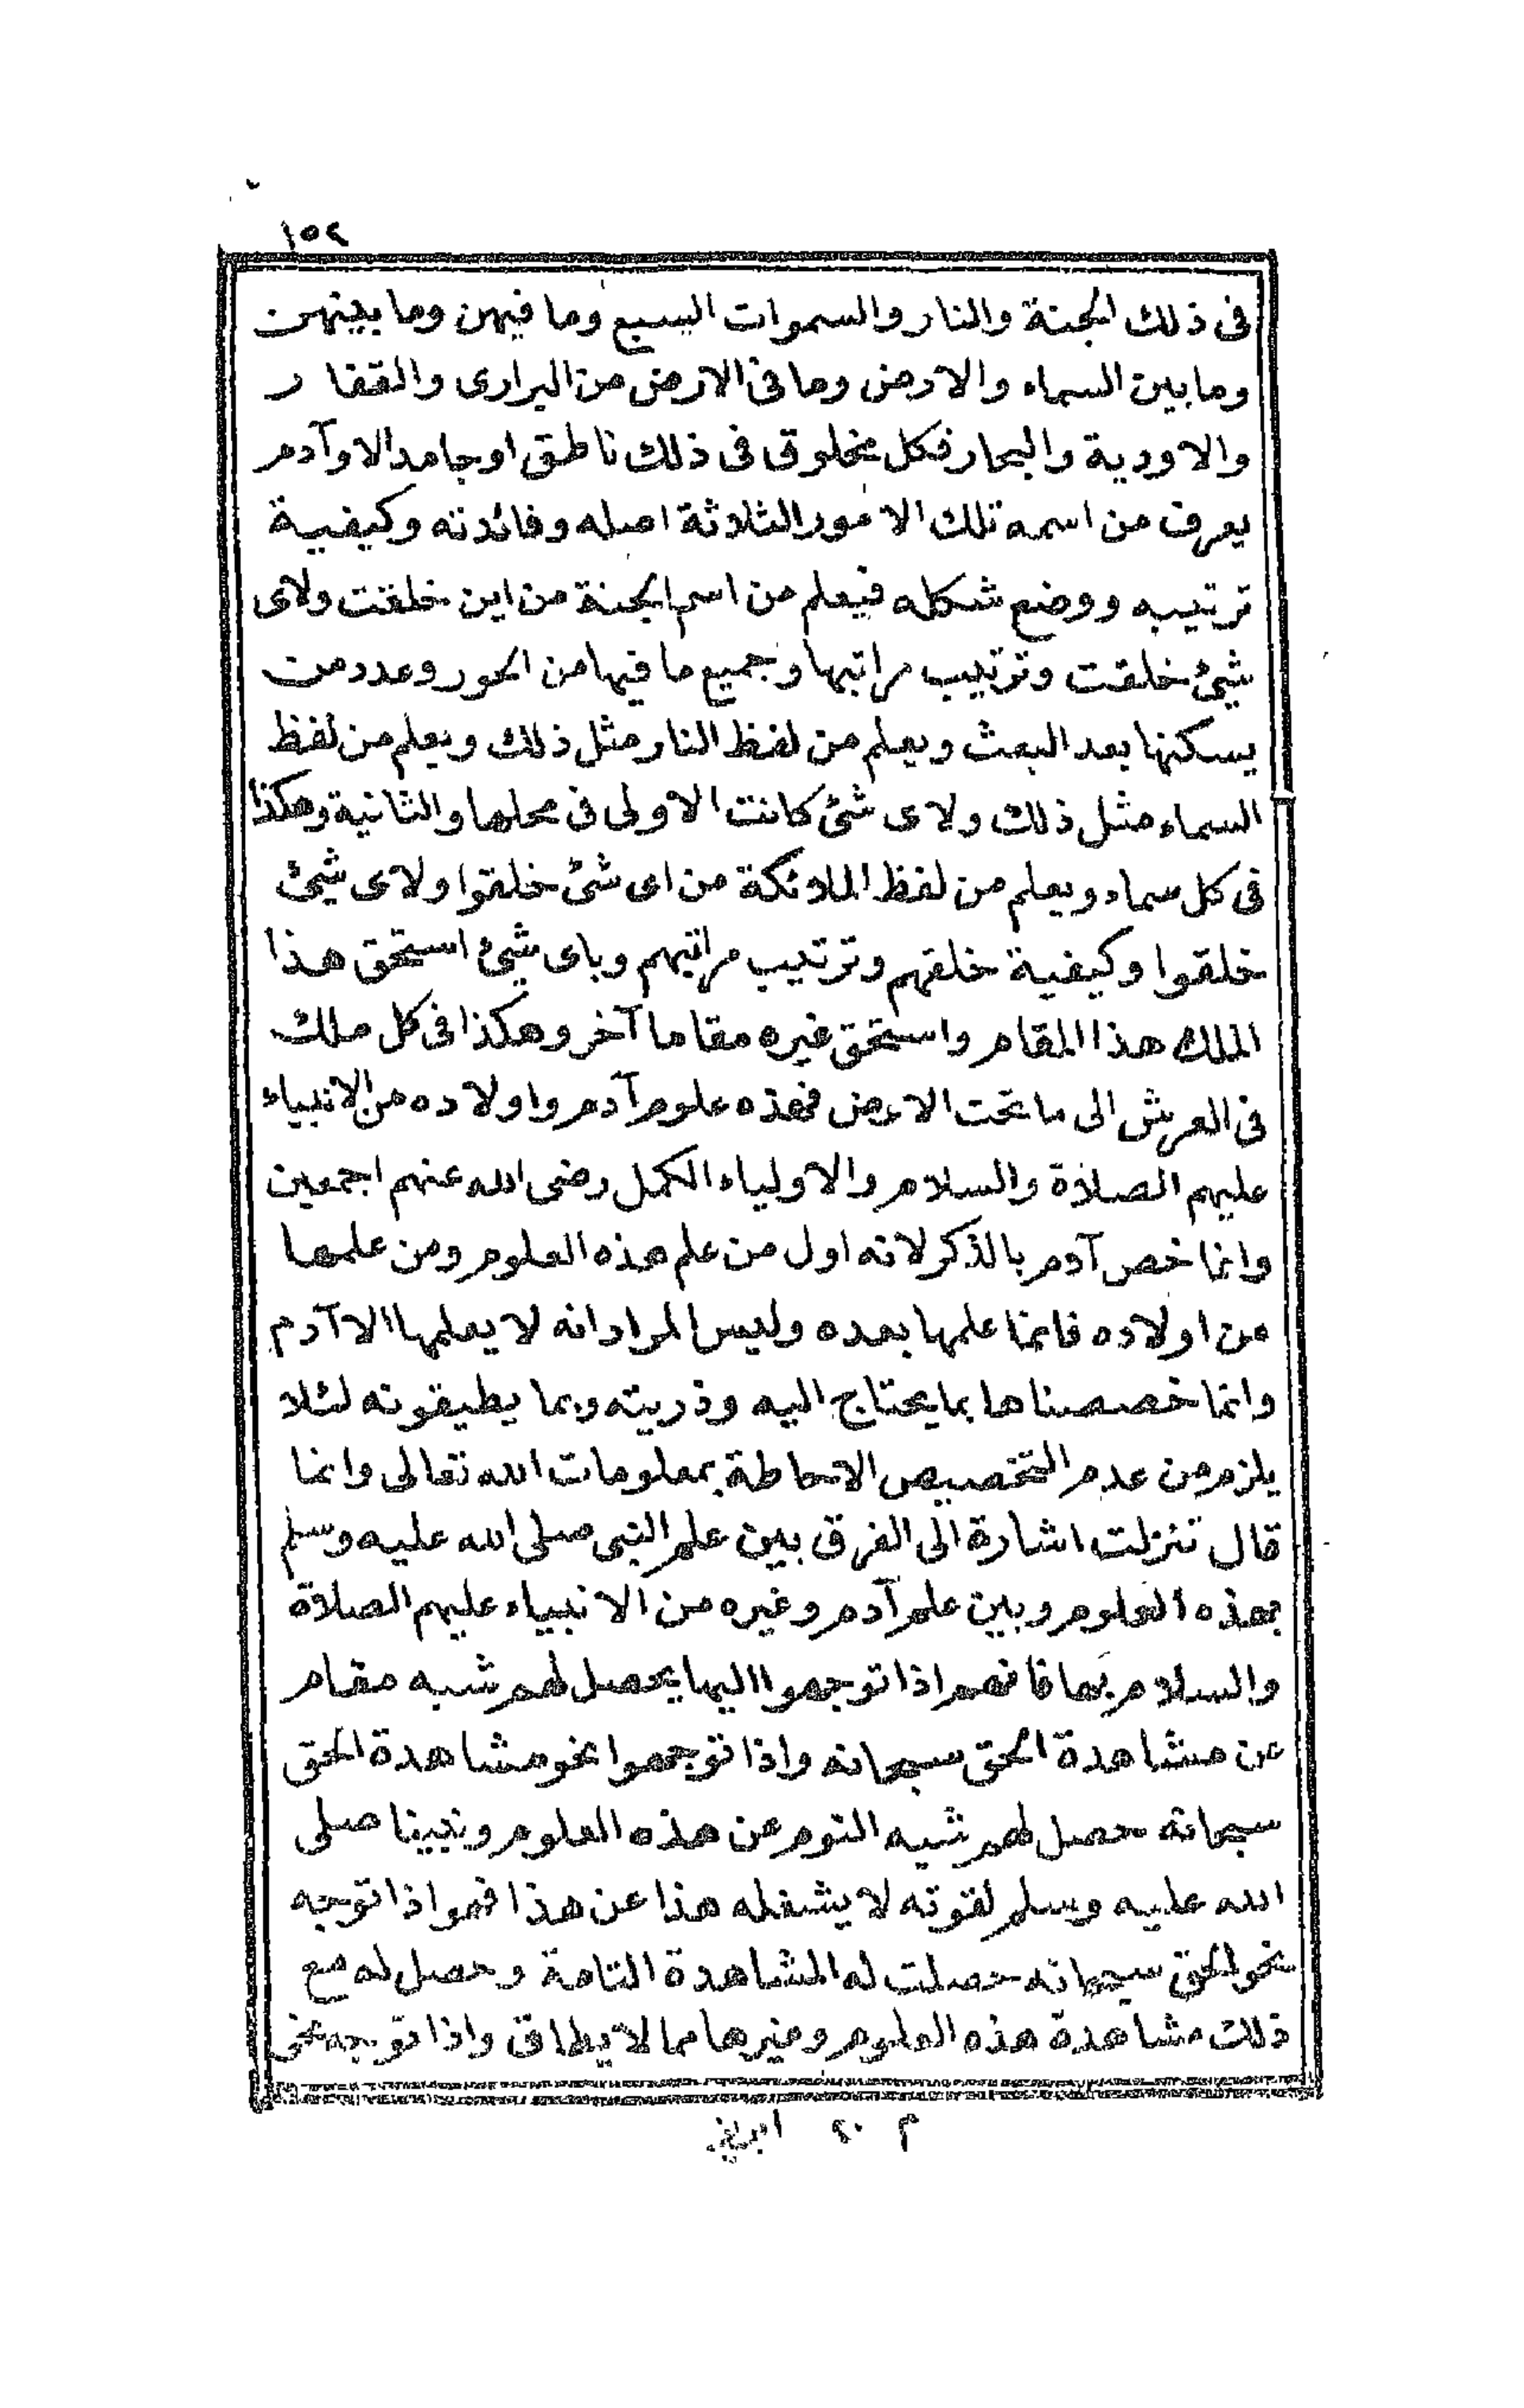 ١٥٢
فى ذلك الجنة والنار والسموات السبع وما فيهن وما بينهن
وما بين السماء والارض وما فى الارض من البرارى والقفا ر
والاودية والبحار فكل مخلوق فى ذلك ناطق او جامد الا وآدم
يعرف من اسمه تلك الامور الثلاثة اصله وفائدته وكيفية
ترتيبه ووضع شكله فيعلم من اسم الجنة من اين خلقت ولاى
شيئ خلقت وترتيب مراتبها وجميع ما فيها من الحور وعدد من
يسكنها بعد البعث ويعلم من لفظ النار مثل ذلك ويعلم من لفظ
السماء مثل ذلك ولاى شئ كانت الاولى فى محلها والثانية وهكذا
فى كل سماء ويعلم من لفظ الملائكة من اى شئ خلقوا ولاى شيئ
خلقوا وكيفية خلقهم وترتيب مراتبهم وباى شيئ استحق هذا
الملك هذا المقام واستحق غيره مقاما آخر وهكذا فى كل ملك
فى العرش الى ما تحت الارض فهذه علوم آدم واولاده من الانبياء
عليهم الصلاة والسلام والاولياء الكمل رضى الله عنهم اجمعين
وانما خص آدم بالذكر لانه اول من علم هذه العلوم ومن علمها
من اولاده فانما علمها بعده وليس المراد انه لا يعلمها الا آدم
وانما خصصناها بما يحتاج اليه وذريته وبما يطيقونه لئلا
يلزم من عدم التخصيص الاحاطة بمعلومات الله تعالى وانما
قال تنزلت اشارة الى الفرق بين علم النبى صلى الله عليه وسلم
بهذه العلوم وبين علم آدم وغيره من الانبياء عليهم الصلاة
والسلام بها فانهم اذا توجهوا اليها يحصل لهم شبه مقام
عن مشاهدة الحق سبحانه واذا توجهوا نحو مشاهدة الحق
سبحانه حصل لهم شبه النوم عن هذه العلوم ونبينا صلى
الله عليه وسلم لقوته لا يشغله هذا عن هذا فهو اذا توجه
نحو الحق سبحانه حصلت له المشاهدة التامة وحصل له مع
ذلك مشاهدة هذه العلوم وغيرها مما لا يطاق واذا توجه نحو
م ٢٠ ابريز